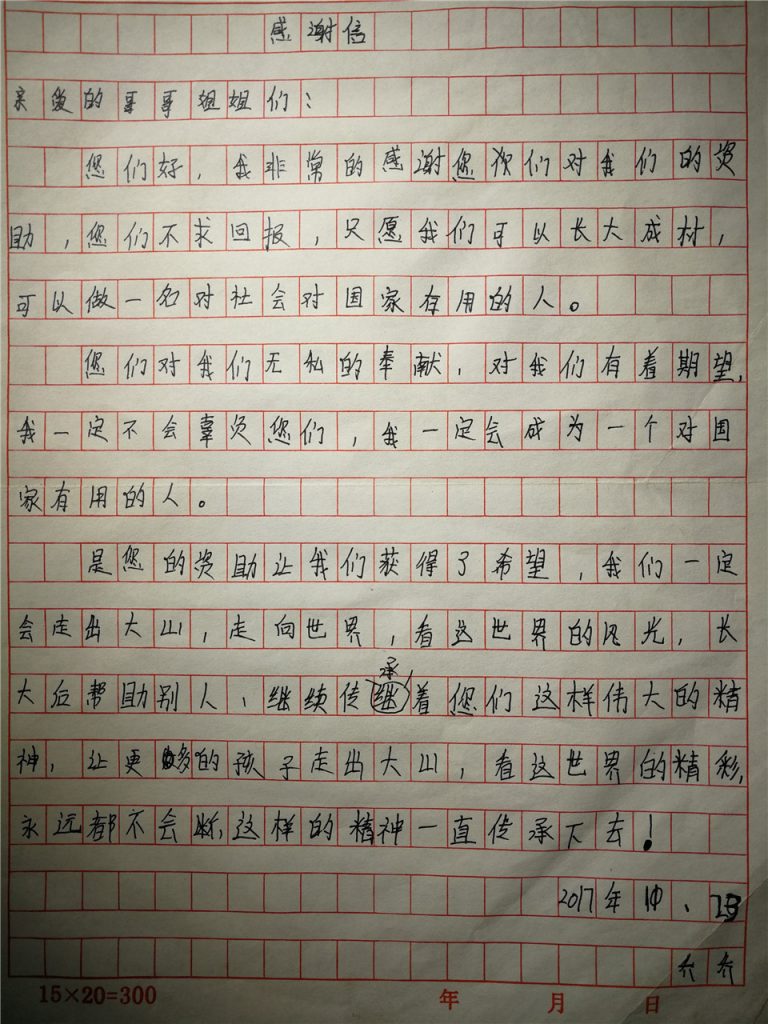 感谢信
亲爱的哥哥姐姐们：
您们好，我非常的感谢您你们对我们的资
助，您们不求回报，只愿我们可以长大成材，
可以做一名对社会对国家存用的人。
您们对我们无私的奉献，对我们有着期望，
我一定不会辜负您们，我一定会成为一个对国
家有用的人。
是您的资助让我们获得了希望，我们一定
会走出大山，走向世界，看这世界的风光，长
承
大后帮助别人、继续传继着您们这样伟大的精
神，让更多的孩子走出大山，看这世界的精彩，
永远都不会断，这样的精神一直传承下去！
2017年
15×20=300 年 月 日